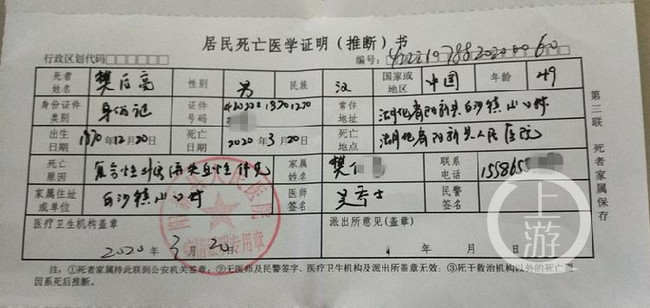 居民死亡医学证明（推断）书
行政区划代码 编号：
死者姓名 樊 高 性别 男 民族 汉 国家或地区 中国 年龄 49
身份证件类别 身份证 证件号码 常住地址 湖北省阳新县白沙镇 村
出生日期 1970年12月20日 死亡日期 2020年3月20日 死亡地点 湖北省阳新县人民医院
死亡原因 复合性外伤 失血性休克 家属姓名 樊 联系电话
家属住址或单位 白沙镇 村 医师签名 民警签名
医疗卫生机构盖章 派出所意见(盖章)
2020年3月20日 年 月 日
注：①死者家属持此联到公安机关签章；②无医师及民警签字、医疗卫生机构及派出所盖章无效；③死于救治机构以外的死亡原因系死后推断。
第三联 死者家属保存
上游